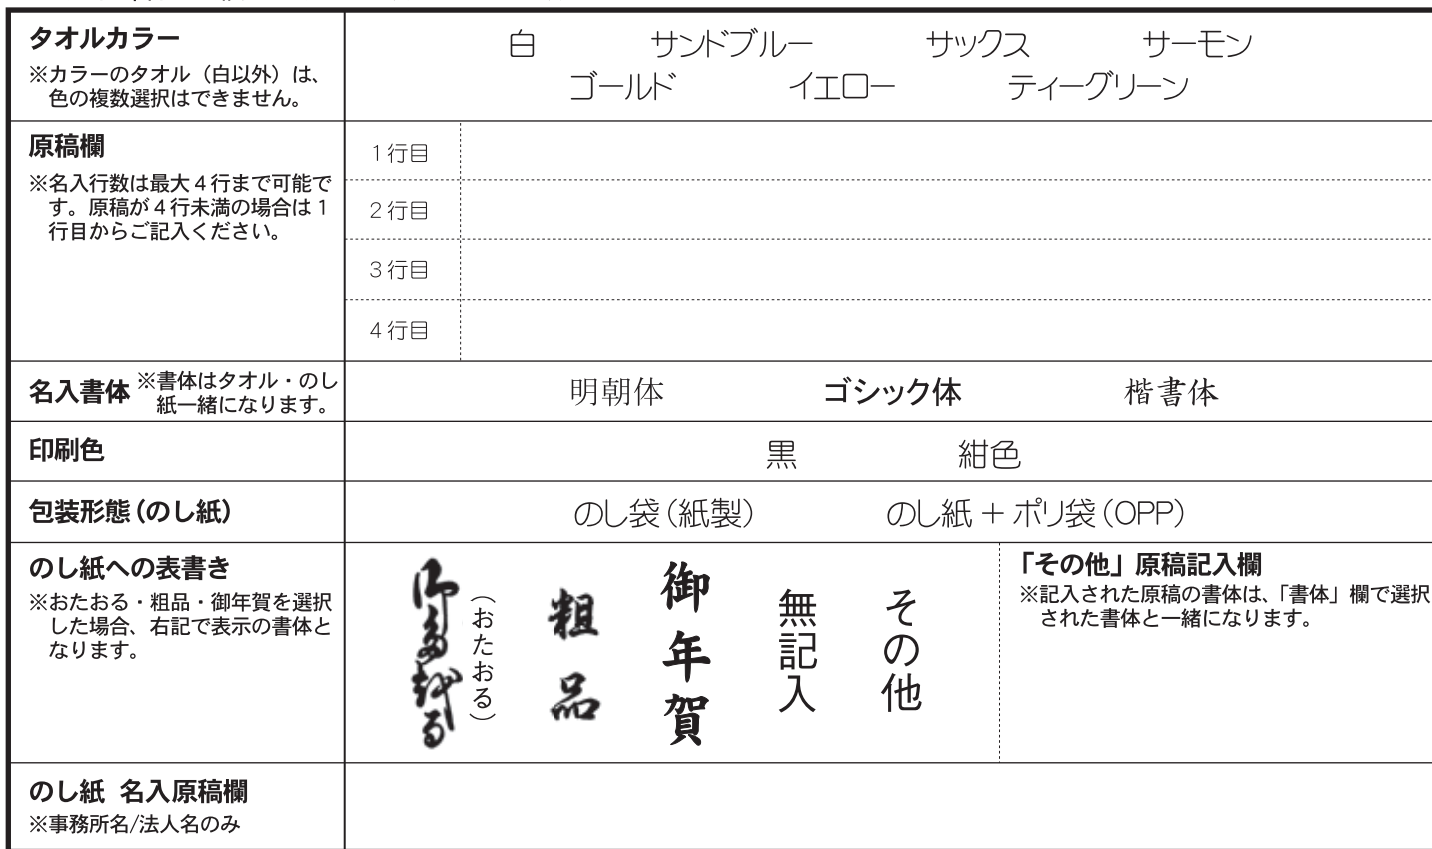 タオルカラー
※カラーのタオル（白以外）は、
色の複数選択はできません。
白　サンドブルー　サックス　サーモン
ゴールド　イエロー　ティーグリーン
原稿欄
※名入行数は最大4行まで可能で
す。原稿が4行未満の場合は1
行目からご記入ください。
1行目
2行目
3行目
4行目
名入書体 ※書体はタオル・のし
紙一緒になります。
明朝体　ゴシック体　楷書体
印刷色
黒　紺色
包装形態（のし紙）
のし袋（紙製）　のし紙＋ポリ袋（OPP）
のし紙への表書き
※おたおる・粗品・御年賀を選択
した場合、右記で表示の書体と
なります。
（おたおる）
粗品
御年賀
無記入
その他
「その他」原稿記入欄
※記入された原稿の書体は、「書体」欄で選択
された書体と一緒になります。
のし紙 名入原稿欄
※事務所名/法人名のみ